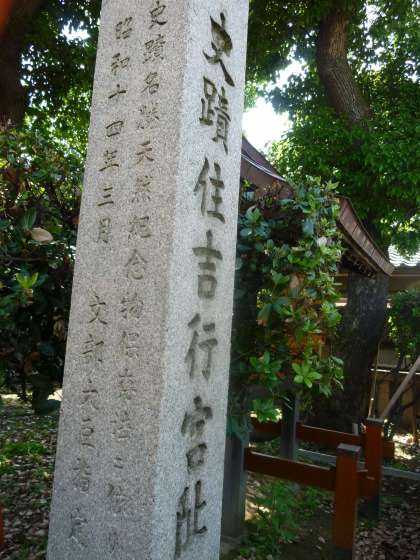 史蹟住吉行宮趾
史蹟名勝天然紀念物保存法ニ依リ
昭和十四年三月 文部大臣指定